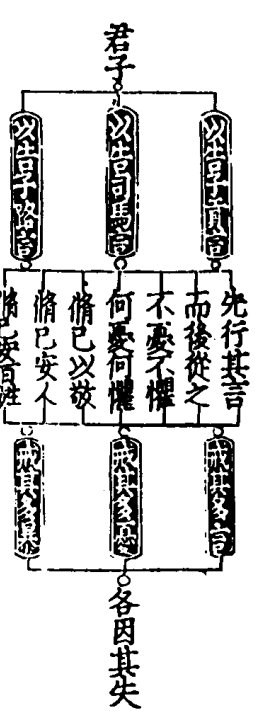 君子
以告子貢言
以告司馬言
以告子路言
先行其言
而後從之
不憂不懼
何憂何懼
脩己以敬
脩己安人
脩己安百姓
戒其多言
戒其多憂
戒其多暴
各因其失